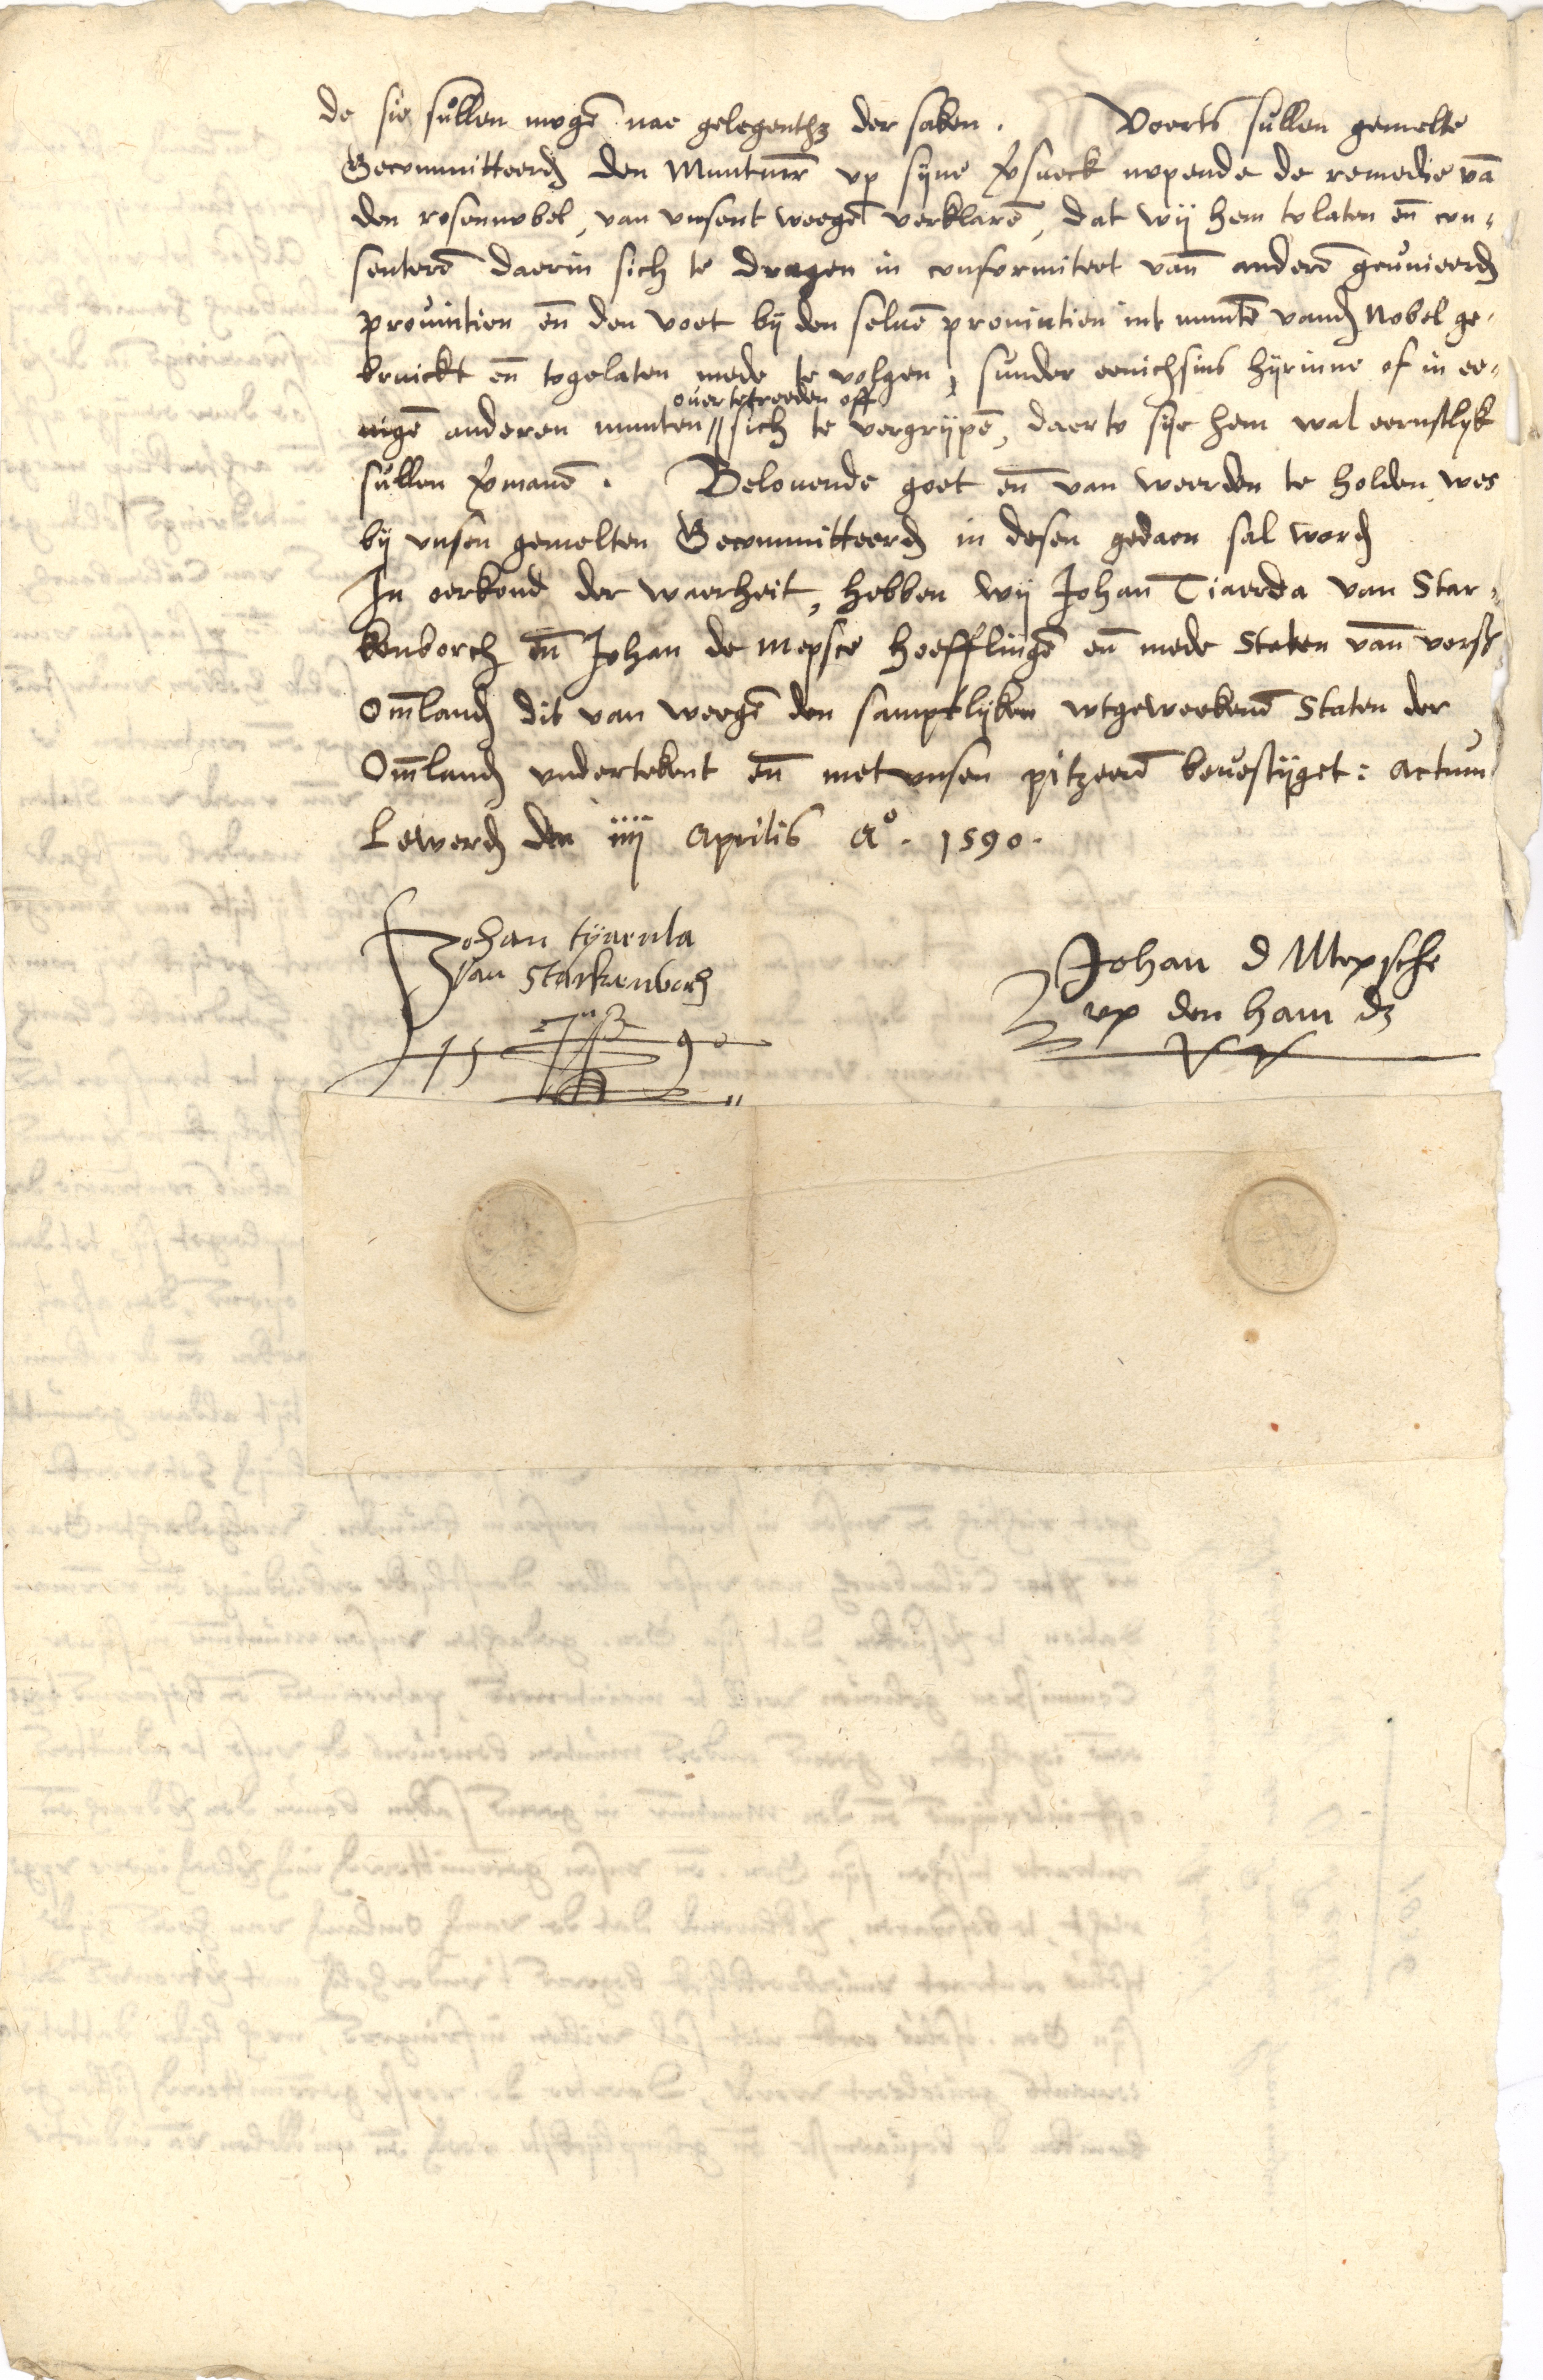 de sie sullen mogē nae gelegenthz der saken. Voorts sullen gemelte
Gecommitteerd den Muntmr up syne versueck nopende de remedie vā
den rosennobel, van unsent weegē verklarē, dat wij hem tolaten eñ con-
senterē daerin sich te dragen in conformiteet vanñ anderē geunieerd
provintien eñ den voet bij den seluē provintien int muntē vand Nobel ge-
bruickt eñ togelaten mede te volgen, sunder eenichsins hyrinne of in ee-
overtetreeden off
nigē anderen munten // sich te vergrypē, daerto sye hem wal eernstlyk
sullen vermanē. Belovende goet eñ van weerden te holden wes
bij unsen gemelten Gecommitteerd in desen gedaen sal word
In oerkond der waerheit, hebben wij Johan Tiaerda van Star-
kenborch eñ Johan de Mepsce hoefflingē eñ mede Staten vanñ vorss
Om̄land dit van weegē den samptlyken wtgeweekenē Staten der
Om̄land undertekent eñ met unsen pitzeerē bevestyget: Actum
Lewerd den iiij Aprilis Aº. 1590.
Johan tyaerda
van Starkenborch
1590
Johan d Mepsche
up den ham